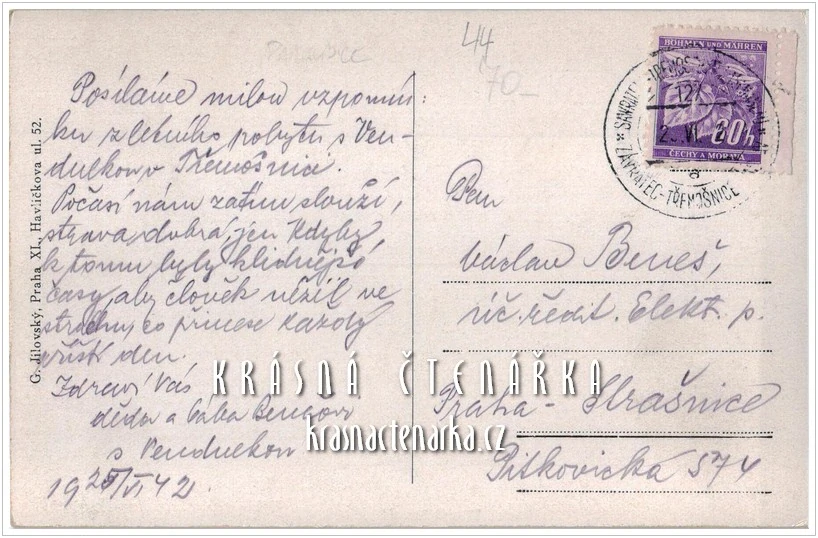 44
70-
Posíláme milou vzpomín
ku z letního pobytu s Ven-
dulkou v Třemošnici.
Počasí nám zatím slouží,
strava dobrá, jen kdyby
k tomu byly klidnější
časy, aby člověk nežil ve
strachu, co přinese každý
příští den.
Zdraví Vás
děda a bába
s Vendulkou
19 25/VI 42
G. Jílovský, Praha XI., Havlíčkova ul. 52.
BÖHMEN UND MÄHREN
60h
ČECHY A MORAVA
ZÁVRATEC-TŘEMOŠNICE
Pan
Václav Beneš,
úč. ředit. Elekt. p.
Praha - Strašnice
Pitkovická 574
KRÁSNÁ ČTENÁŘKA
krasnactenarka.cz